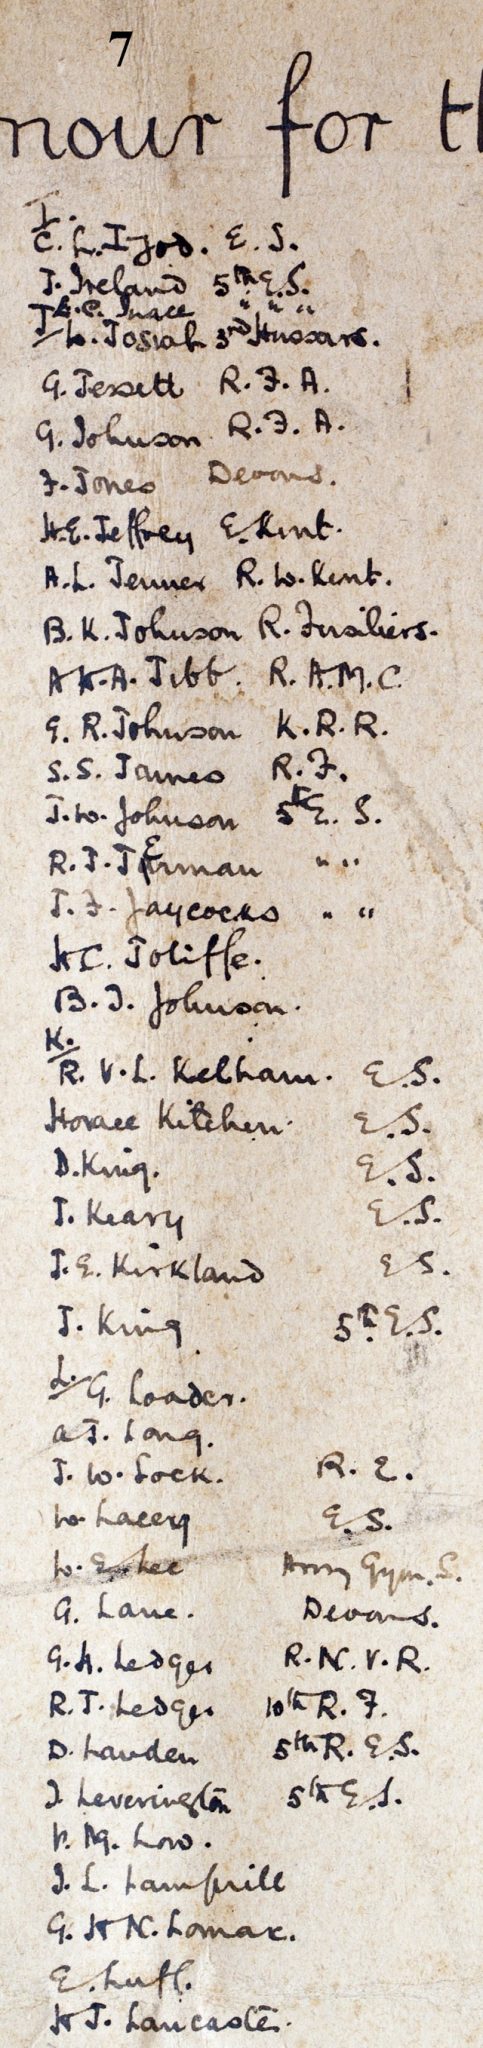 7
nour for th
I.
C. L. Izod. E. S.
J. Ireland 5th E.S.
E. C. Inace " " "
J.
W. Josiah 3rd Hussars.
G. Jessett R. F. A.
G. Johnson R. F. A.
F. Jones Devons.
H.E. Jeffrey E. Kent.
A.L. Jenner R. W. Kent.
B. K. Johnson R. Fusiliers.
A H. A. Jibb. R. A. M. C.
E. R. Johnson K. R. R.
S. S. James R. F.
J. W. Johnson 5th E. S.
R. J. Jerman " "
J. F. Jaycocks " "
H C. Joliffe.
B. J. Johnson.
K.
R. V. L. Kelham. E. S.
Horace Kitchen. E. S.
D. King. E. S.
J. Keary E. S.
J. E. Kirkland E S.
J. King 5th E. S.
L.
G. Loader.
A J. Long.
J. W. Lock. R. E.
W. Lacey E. S.
W. E. Lee Army Gym. S.
G. Lane. Devons.
G. A. Ledger R. N. V. R.
R. J. Ledger 10th R. F.
D. Lauden 5th R. E. S.
J. Leverington 5th E. S.
Low.
J. L. Lamprill
G. H N. Lomax.
E. Luff.
H J. Lancaster.